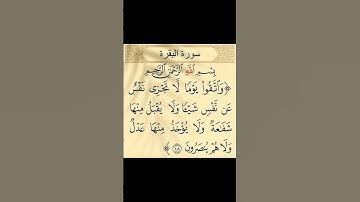 سورة البقرة
بِسْمِ اللَّهِ الرَّحْمَٰنِ الرَّحِيمِ
﴿وَاتَّقُوا۟ يَوْمًا لَّا تَجْزِى نَفْسٌ
عَن نَّفْسٍ شَيْـًٔا وَلَا يُقْبَلُ مِنْهَا
شَفَـٰعَةٌ وَلَا يُؤْخَذُ مِنْهَا عَدْلٌ
وَلَا هُمْ يُنصَرُونَ ٤٨﴾